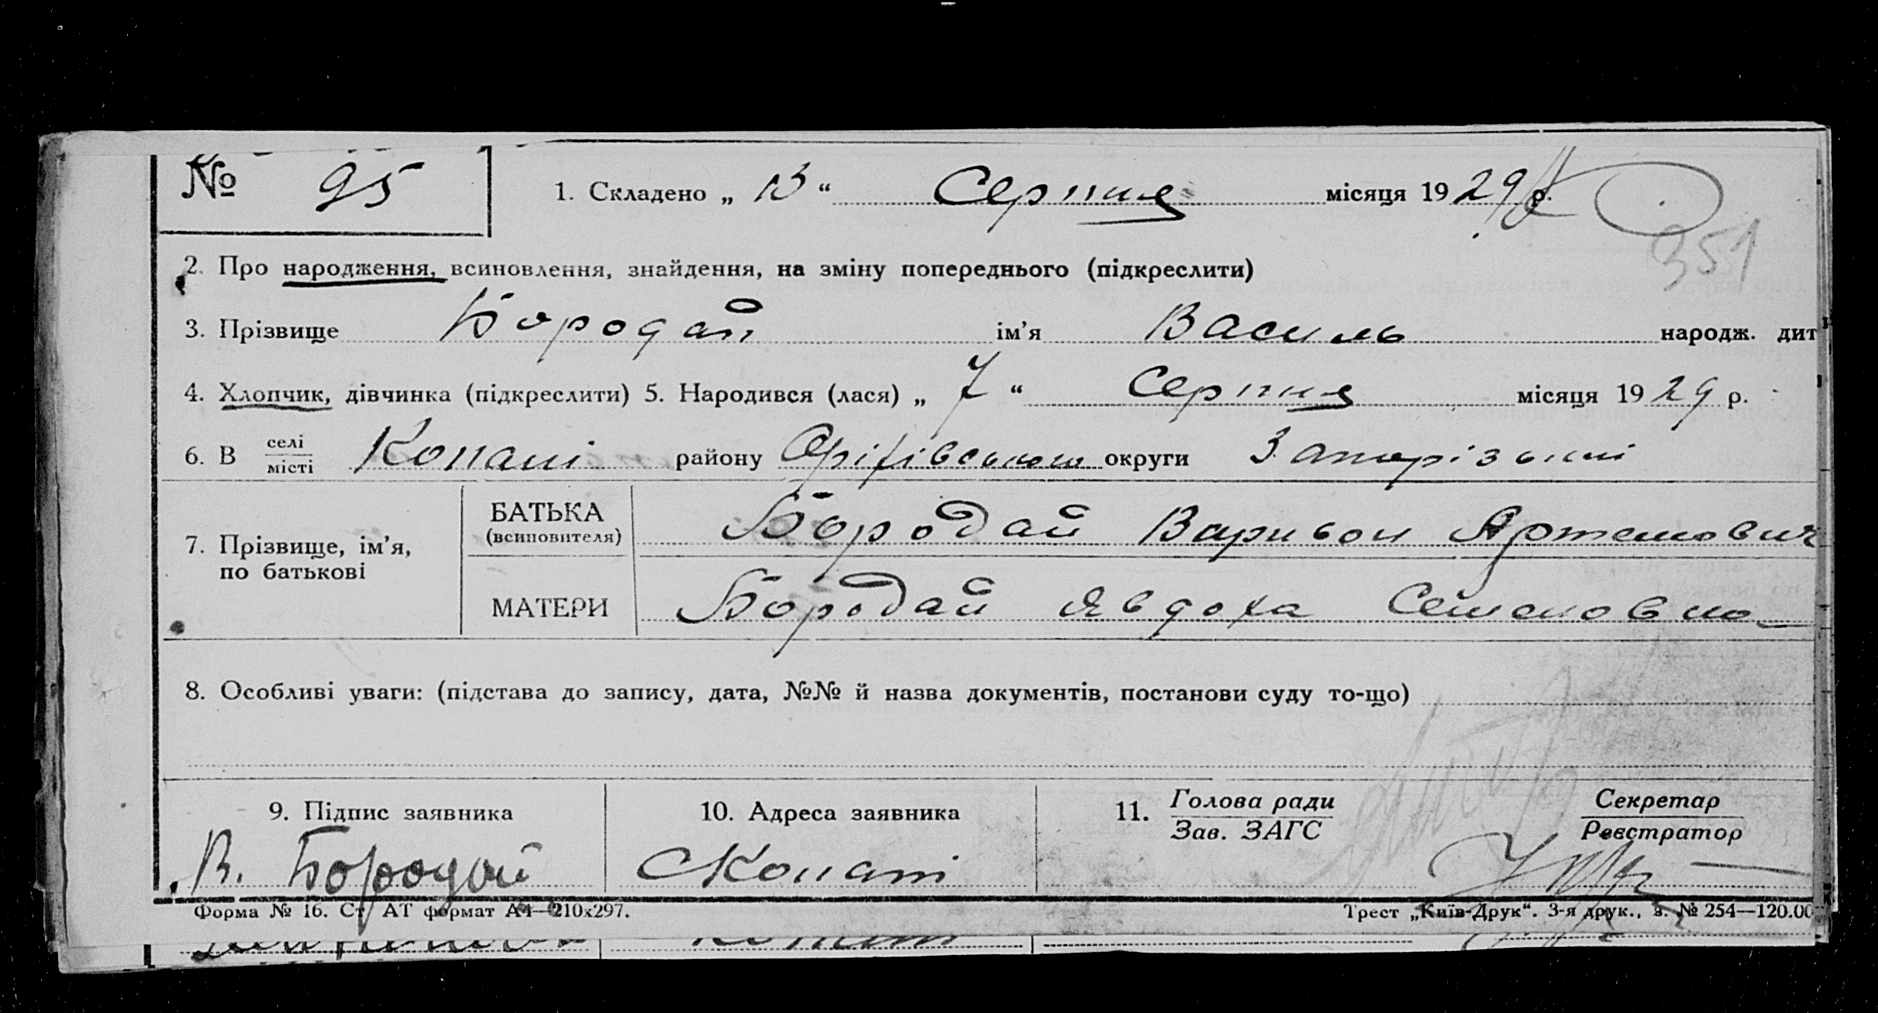 № 95 1. Складено „ 13 “ Серпня місяця 1929 р.
351
2. Про народження, всиновлення, знайдення, на зміну попереднього (підкреслити)
3. Прізвище Бородай ім’я Василь народж. дит
4. Хлопчик, дівчинка (підкреслити) 5. Народився (лася) „ 7 “ Серпня місяця 1929 р.
6. В селі місті Копані району Оріхівського округи Запорізької
7. Прізвище, ім’я, по батькові
БАТЬКА (всиновителя) Бородай Варивон Артемович
МАТЕРИ Бородай Явдоха Семеновна
8. Особливі уваги: (підстава до запису, дата, №№ й назва документів, постанови суду то-що)
9. Підпис заявника 10. Адреса заявника 11. Голова ради Секретар
Зав. ЗАГС Реєстратор
В. Бородай Копані
Форма № 16. Ст АТ формат А4—210х297. Трест „Київ-Друк“. 3-я друк., з. № 254—120.00